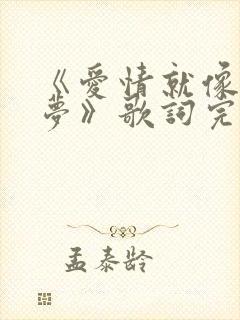 《愛情就像
夢》歌詞完
孟泰龄